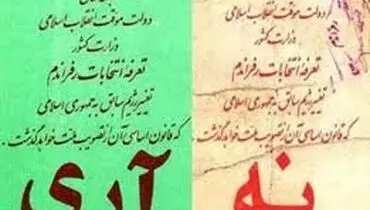 دولت موقت انقلاب اسلامی
وزارت کشور
تعرفه انتخابات رفراندم
تغییر رژیم سابق به جمهوری اسلامی
که قانون اساسی آن از تصویب ملت خواهد گذشت .
نه
دولت موقت انقلاب اسلامی
وزارت کشور
تعرفه انتخابات رفراندم
تغییر رژیم سابق به جمهوری اسلامی
که قانون اساسی آن از تصویب ملت خواهد گذشت .
آری